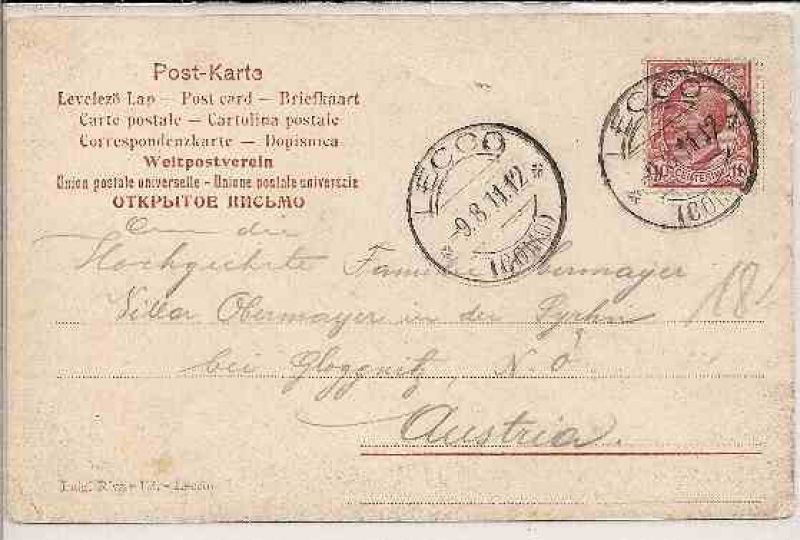 Post-Karte
Levelező Lap — Post card — Briefkaart
Carte postale — Cartolina postale
Correspondenzkarte — Dopisnica
Weltpostverein
Union postale universelle - Unione postale universale
ОТКРЫТОЕ ПИСЬМО
LECCO
-9.8.11.12
(COMO)
LECCO
11.12
(COM
An die
Hochgeehrte Familie Obermayer
Villa Obermayer in der
bei Gloggnitz, N. Ö.
Austria.
18
Lecco